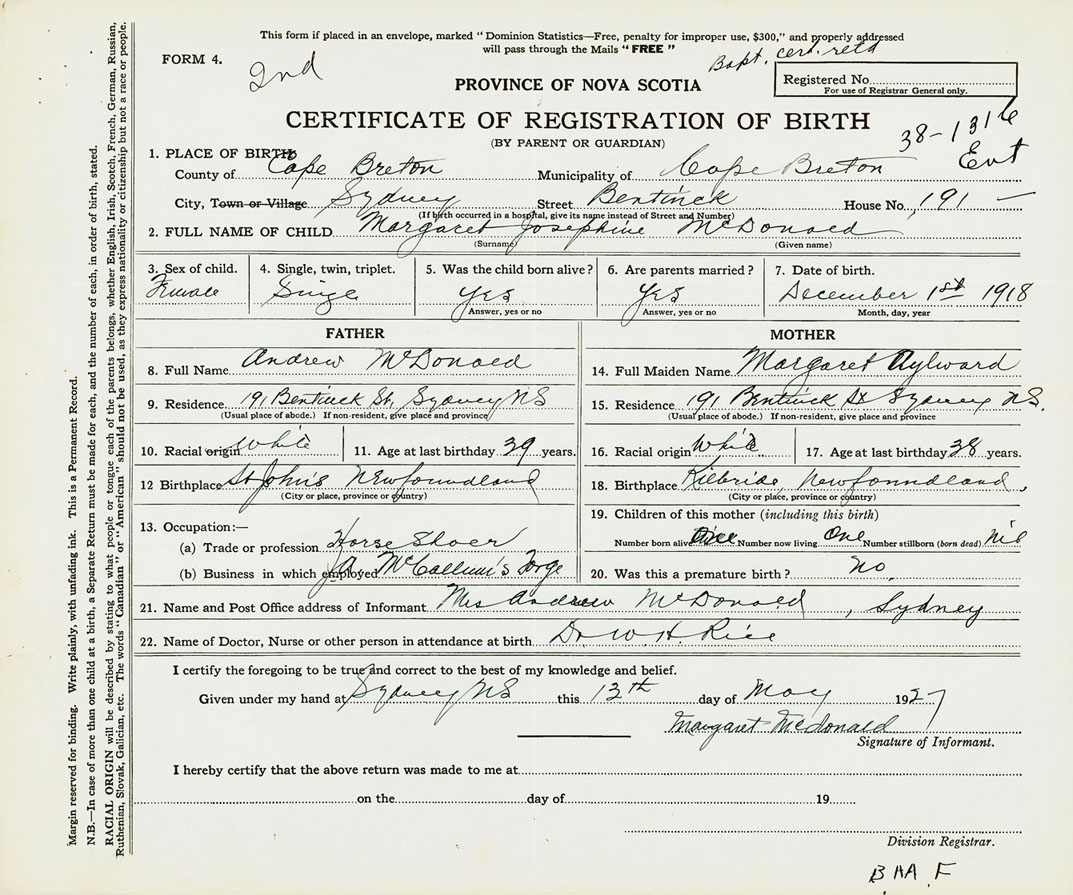 This form if placed in an envelope, marked "Dominion Statistics—Free, penalty for improper use, $300," and properly addressed
will pass through the Mails "FREE"
FORM 4.
2nd
Bapt. cert. retd
PROVINCE OF NOVA SCOTIA
Registered No.
For use of Registrar General only.
CERTIFICATE OF REGISTRATION OF BIRTH
(BY PARENT OR GUARDIAN)
38-1316
Ent
1. PLACE OF BIRTH
County of Cape Breton Municipality of Cape Breton
City, Town or Village Sydney Street Bentinck House No. 191
(If birth occurred in a hospital, give its name instead of Street and Number)
2. FULL NAME OF CHILD Margaret Josephine McDonald
(Surname) (Given name)
3. Sex of child. 4. Single, twin, triplet. 5. Was the child born alive? 6. Are parents married? 7. Date of birth.
Female Single Yes Yes December 1st 1918
Answer, yes or no Answer, yes or no Month, day, year
FATHER MOTHER
8. Full Name Andrew McDonald 14. Full Maiden Name Margaret Aylward
9. Residence 191 Bentinck St, Sydney NS 15. Residence 191 Bentinck St Sydney N.S.
(Usual place of abode.) If non-resident, give place and province (Usual place of abode.) If non-resident, give place and province
10. Racial origin White 11. Age at last birthday 39 years. 16. Racial origin White 17. Age at last birthday 38 years.
12 Birthplace St John's Newfoundland 18. Birthplace Kilbride Newfoundland,
(City or place, province or country) (City or place, province or country)
13. Occupation:— 19. Children of this mother (including this birth)
(a) Trade or profession Horse Shoer Number born alive One Number now living One Number stillborn (born dead) Nil
(b) Business in which employed McCallum's Forge 20. Was this a premature birth? no
21. Name and Post Office address of Informant Mrs Andrew McDonald, Sydney
22. Name of Doctor, Nurse or other person in attendance at birth Dr W. H. Rice
I certify the foregoing to be true and correct to the best of my knowledge and belief.
Given under my hand at Sydney NS this 13th day of May 1927
Margaret McDonald
Signature of Informant.
I hereby certify that the above return was made to me at
on the day of 19
Division Registrar.
B HA F
Margin reserved for binding. Write plainly, with unfading ink. This is a Permanent Record.
N.B.—In case of more than one child at a birth, a Separate Return must be made for each, and the number of each, in order of birth, stated.
RACIAL ORIGIN will be described by stating to what people or tongue each of the parents belongs, whether English, Irish, Scotch, French, German, Russian,
Ruthenian, Slovak, Galician, etc. The words "Canadian" or "American" should not be used, as they express nationality or citizenship but not a race or people.